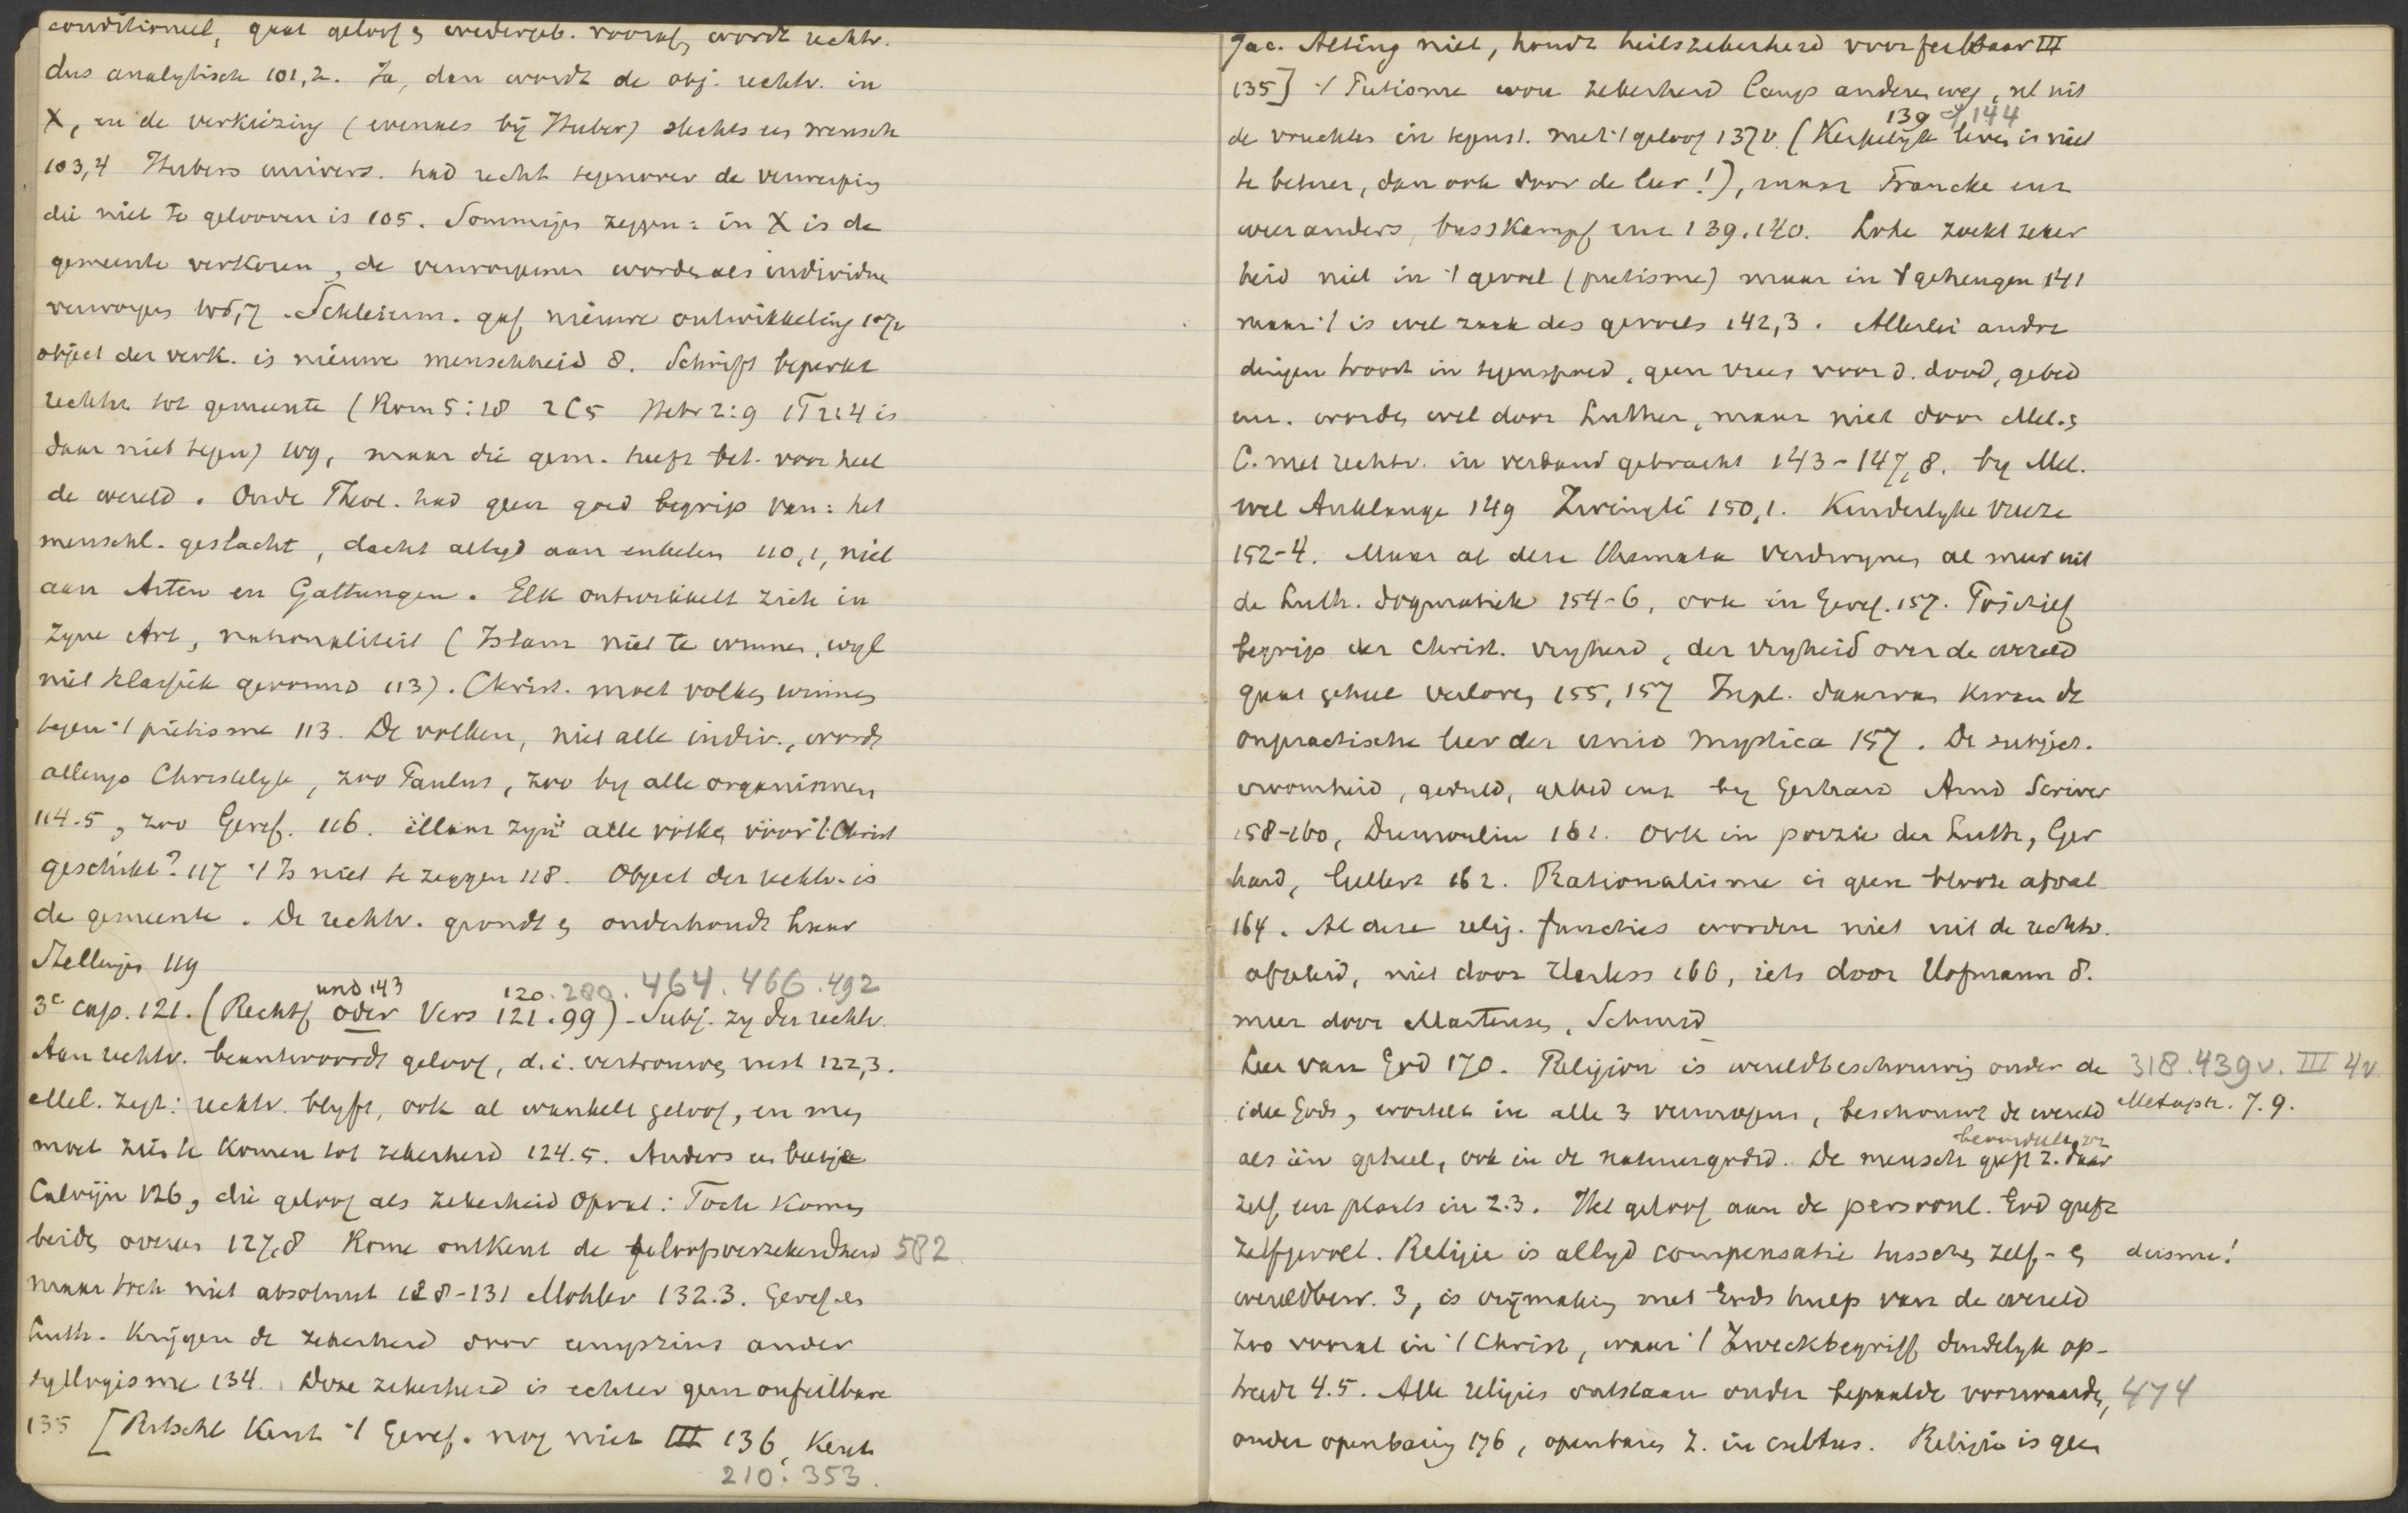 conditioneel, gaat geloof & wedergeb. vooraf, wordt rechtv.
dus analytisch 101,2. Ja, dan wordt de obj. rechtv. in
X, en de verkiezing (evenals bij Huber) slechts een wensch
103,4 Hubers univers. had recht tegenover de verwerping
die niet te gelooven is 105. Sommigen zeggen: in X is de
gemeente verkoren, de verworpenen worden als individuen
verworpen 106,7. Schleierm. gaf nieuwe ontwikkeling 107v
object der verk. is nieuwe menschheid 8. Schrift beperkt
rechtv. tot gemeente (Rom 5:18 2C5 Hebr 2:9 1T2:4 is
daar niet tegen) 109, maar die gem. heeft bet. voor heel
de wereld. Oude Theol. had geen goed begrip van: het
menschl. geslacht, dacht altyd aan enkelen 110,1, niet
aan Arten en Gattungen. Elk ontwikkelt zich in
zyne Art, nationaliteit (Islam niet te winnen, wyl
niet klassiek gevormd 113). Christ. moet volken winnen
tegen 't pietisme 113. De volken, niet alle indiv., worden
allengs Christelyk, zoo Paulus, zoo by alle organismen
114.5, zoo Geref. 116. Maar zyn alle volken voor 't Christ
geschikt? 117 't Is niet te zeggen 118. Object der rechtv. is
de gemeente. De rechtv. grondt & onderhoudt haar
Stellingen 119
und 143 120.280.464.466.492
3e cap. 121. (Rechtf oder Vers 121.99) - Subj. zy der rechtv.
Aan rechtv. beantwoordt geloof, d.i. vertrouwen, rust 122,3.
Mel. zegt: rechtv. blyft, ook al wankelt geloof, en men
moet zien te komen tot zekerheid 124.5. Anders een beetje
Calvijn 126, die geloof als zekerheid opvat: Toch komen
beiden overeen 127,8 Rome ontkent de geloofsverzekerdheid 582
maar toch niet absoluut 128-131 Mohler 132.3. Geref. en
Luth. krijgen de zekerheid door eenigszins ander
syllogisme 134. Deze zekerheid is echter geen onfeilbare
135 [Ritschl kent 't Geref. nog niet III 136, kent
210: 353.
Jac. Alting niet, houdt heilszekerheid voor feilbaar III
135] 't Pietisme wou zekerheid langs anderen weg, nl uit
139 cf 144
de vruchten in tegenst. met 't geloof 137v. (Kerkelijk leven is niet
te beheer, dan ook door de leer!), maar Francke enz
weer anders, busskampf enz 139.140. Lohe zoekt zeker
heid niet in 't gevoel (pietisme) maar in 't geheugen 141
maar 't is wel zaak des gevoels 142,3. Allerlei andre
dingen troost in tegenspoed, geen vrees voor d. dood, gebed
enz. worden wel door Luther, maar niet door Mel. &
C. met rechtv. in verband gebracht 143-147,8. by Mel.
wel Anklange 149 Zwingli 150,1. Kinderlyke vreeze
152-4. Maar al deze themata verdwynen al meer uit
de Luth. dogmatiek 154-6, ook in Geref. 157. Positief
begrip der christ. vryheid, der vryheid over de wereld
gaat geheel verloren 155,157 In pl. daarvan kwam de
onpractische leer der unio mystica 157. De subject.
vroomheid, geduld, gebed enz by Gerhard Arnd Scriver
158-160, Dumoulin 161. Ook in poezie der Luth, Ger
hard, Gellert 162. Rationalisme is geen bloote afval
164. Al deze relig. functies worden niet uit de rechtv.
afgeleid, niet door Harless 166, iets door Hofmann 8.
meer door Martensen, Schmid
Leer van God 170. Religion is wereldbeschouwing onder de 318.439v. III 4v.
idee Gods, wortelt in alle 3 vermogens, beschouwt de wereld Metaph. 7.9.
beoordeelt zn
als één geheel, ook in de natuurgodsd. De mensch geeft z. daar
zelf een plaats in 2.3. Het geloof aan de persoonl. God geeft
zelfgevoel. Religie is altyd compensatie tusschen zelf- & deisme!
wereldbew. 3, is vrijmaking met Gods hulp van de wereld
zoo vooral in 't Christ, waar 't Zweckbegriff duidelyk op-
treedt 4.5. Alle religies ontstaan onder bepaalde voorwaarden, 474
onder openbaring 176, openbaren z. in cultus. Religie is geen